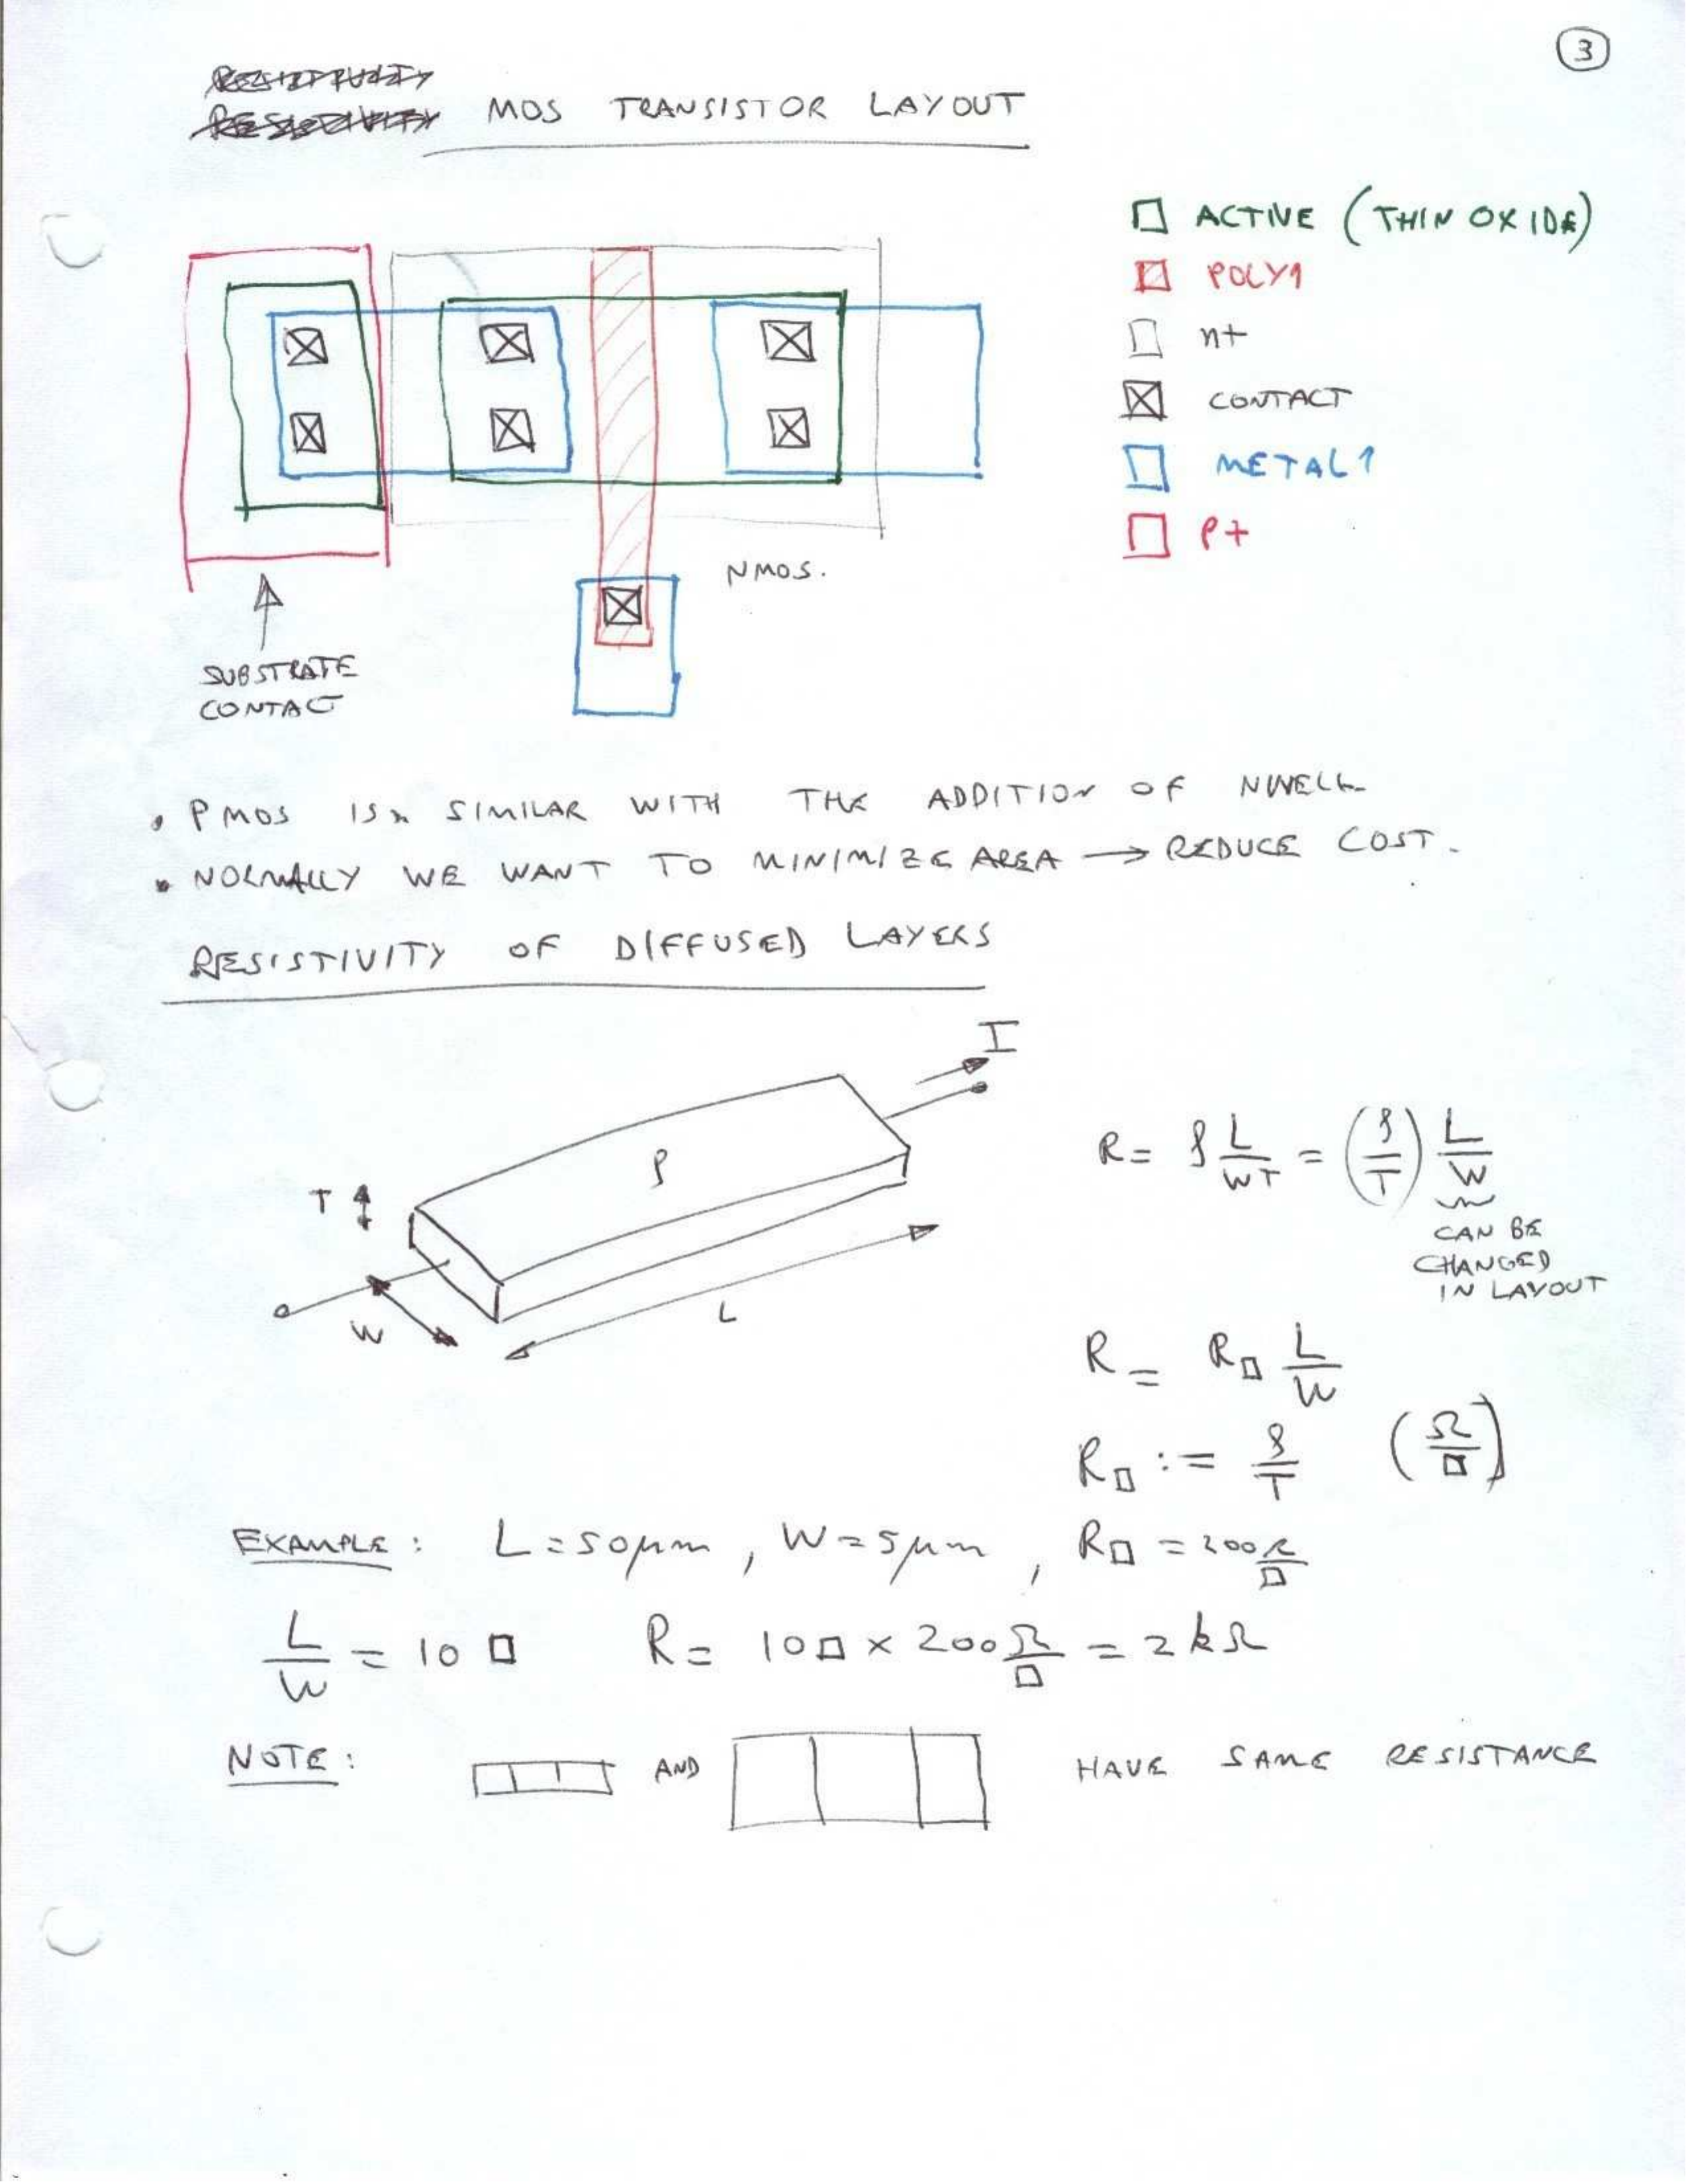 3
MOS TRANSISTOR LAYOUT
ACTIVE (THIN OXIDE)
POLY1
n+
CONTACT
METAL1
P+
NMOS.
SUBSTRATE
CONTACT
• PMOS IS SIMILAR WITH THE ADDITION OF NWELL
• NORMALLY WE WANT TO MINIMIZE AREA → REDUCE COST.
RESISTIVITY OF DIFFUSED LAYERS
I
ρ
T
W
L
R = ρ L/WT = (ρ/T) L/W
CAN BE
CHANGED
IN LAYOUT
R = R□ L/W
R□ := ρ/T (Ω/□)
EXAMPLE: L=50μm, W=5μm, R□=200Ω/□
L/W = 10 □ R = 10□ × 200Ω/□ = 2kΩ
NOTE: AND HAVE SAME RESISTANCE